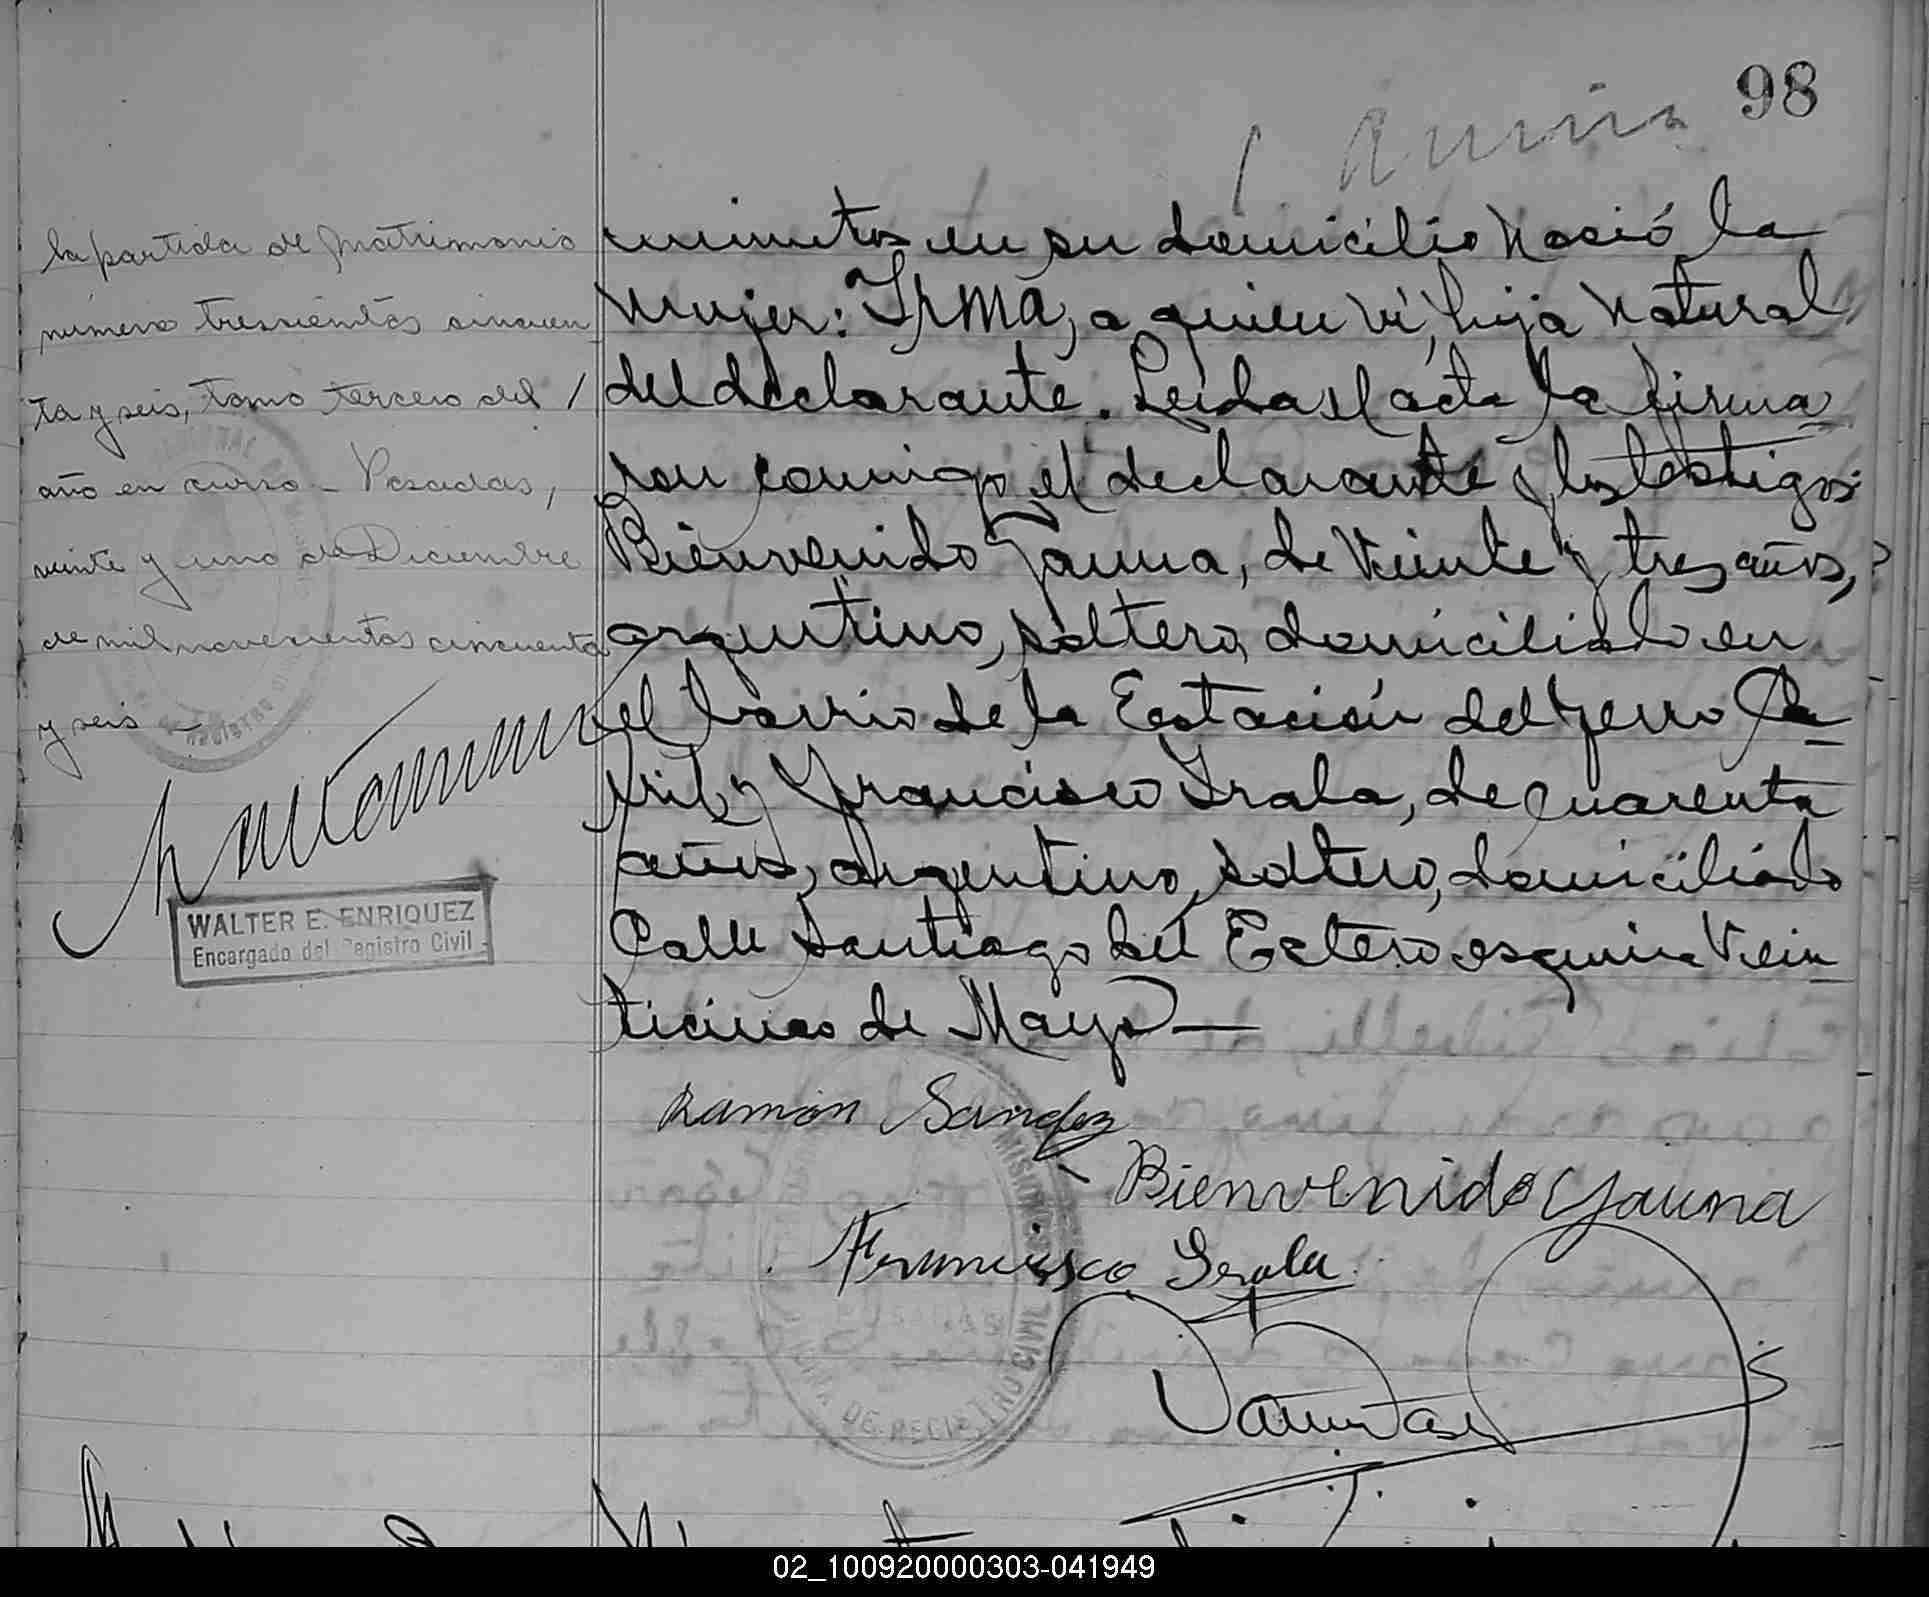 98
la partida de matrimonio
número trescientos cincuen
ta y seis, tomo tercero del /
año en curso - Posadas,
veinte y uno de Diciembre
de mil novecientos cincuenta
y seis -
WALTER E. ENRIQUEZ
Encargado del Registro Civil
minutos en su domicilio nació la
mujer: IRMA, a quien vi, hija natural
del declarante. Leída el acta la firma
ron conmigo el declarante y los testigos:
Bienvenido Gauna, de veinte y tres años,
argentino, soltero, domiciliado en
el barrio de la Estación del Ferro Ca-
rril y Francisco Irala, de cuarenta
años, argentino, soltero, domiciliado
Calle Santiago del Estero esquina Vein-
ticinco de Mayo —
Ramón Sanchez
Bienvenido Gauna
Francisco Irala
MISIONES
REGISTRO CIVIL
02_100920000303-041949